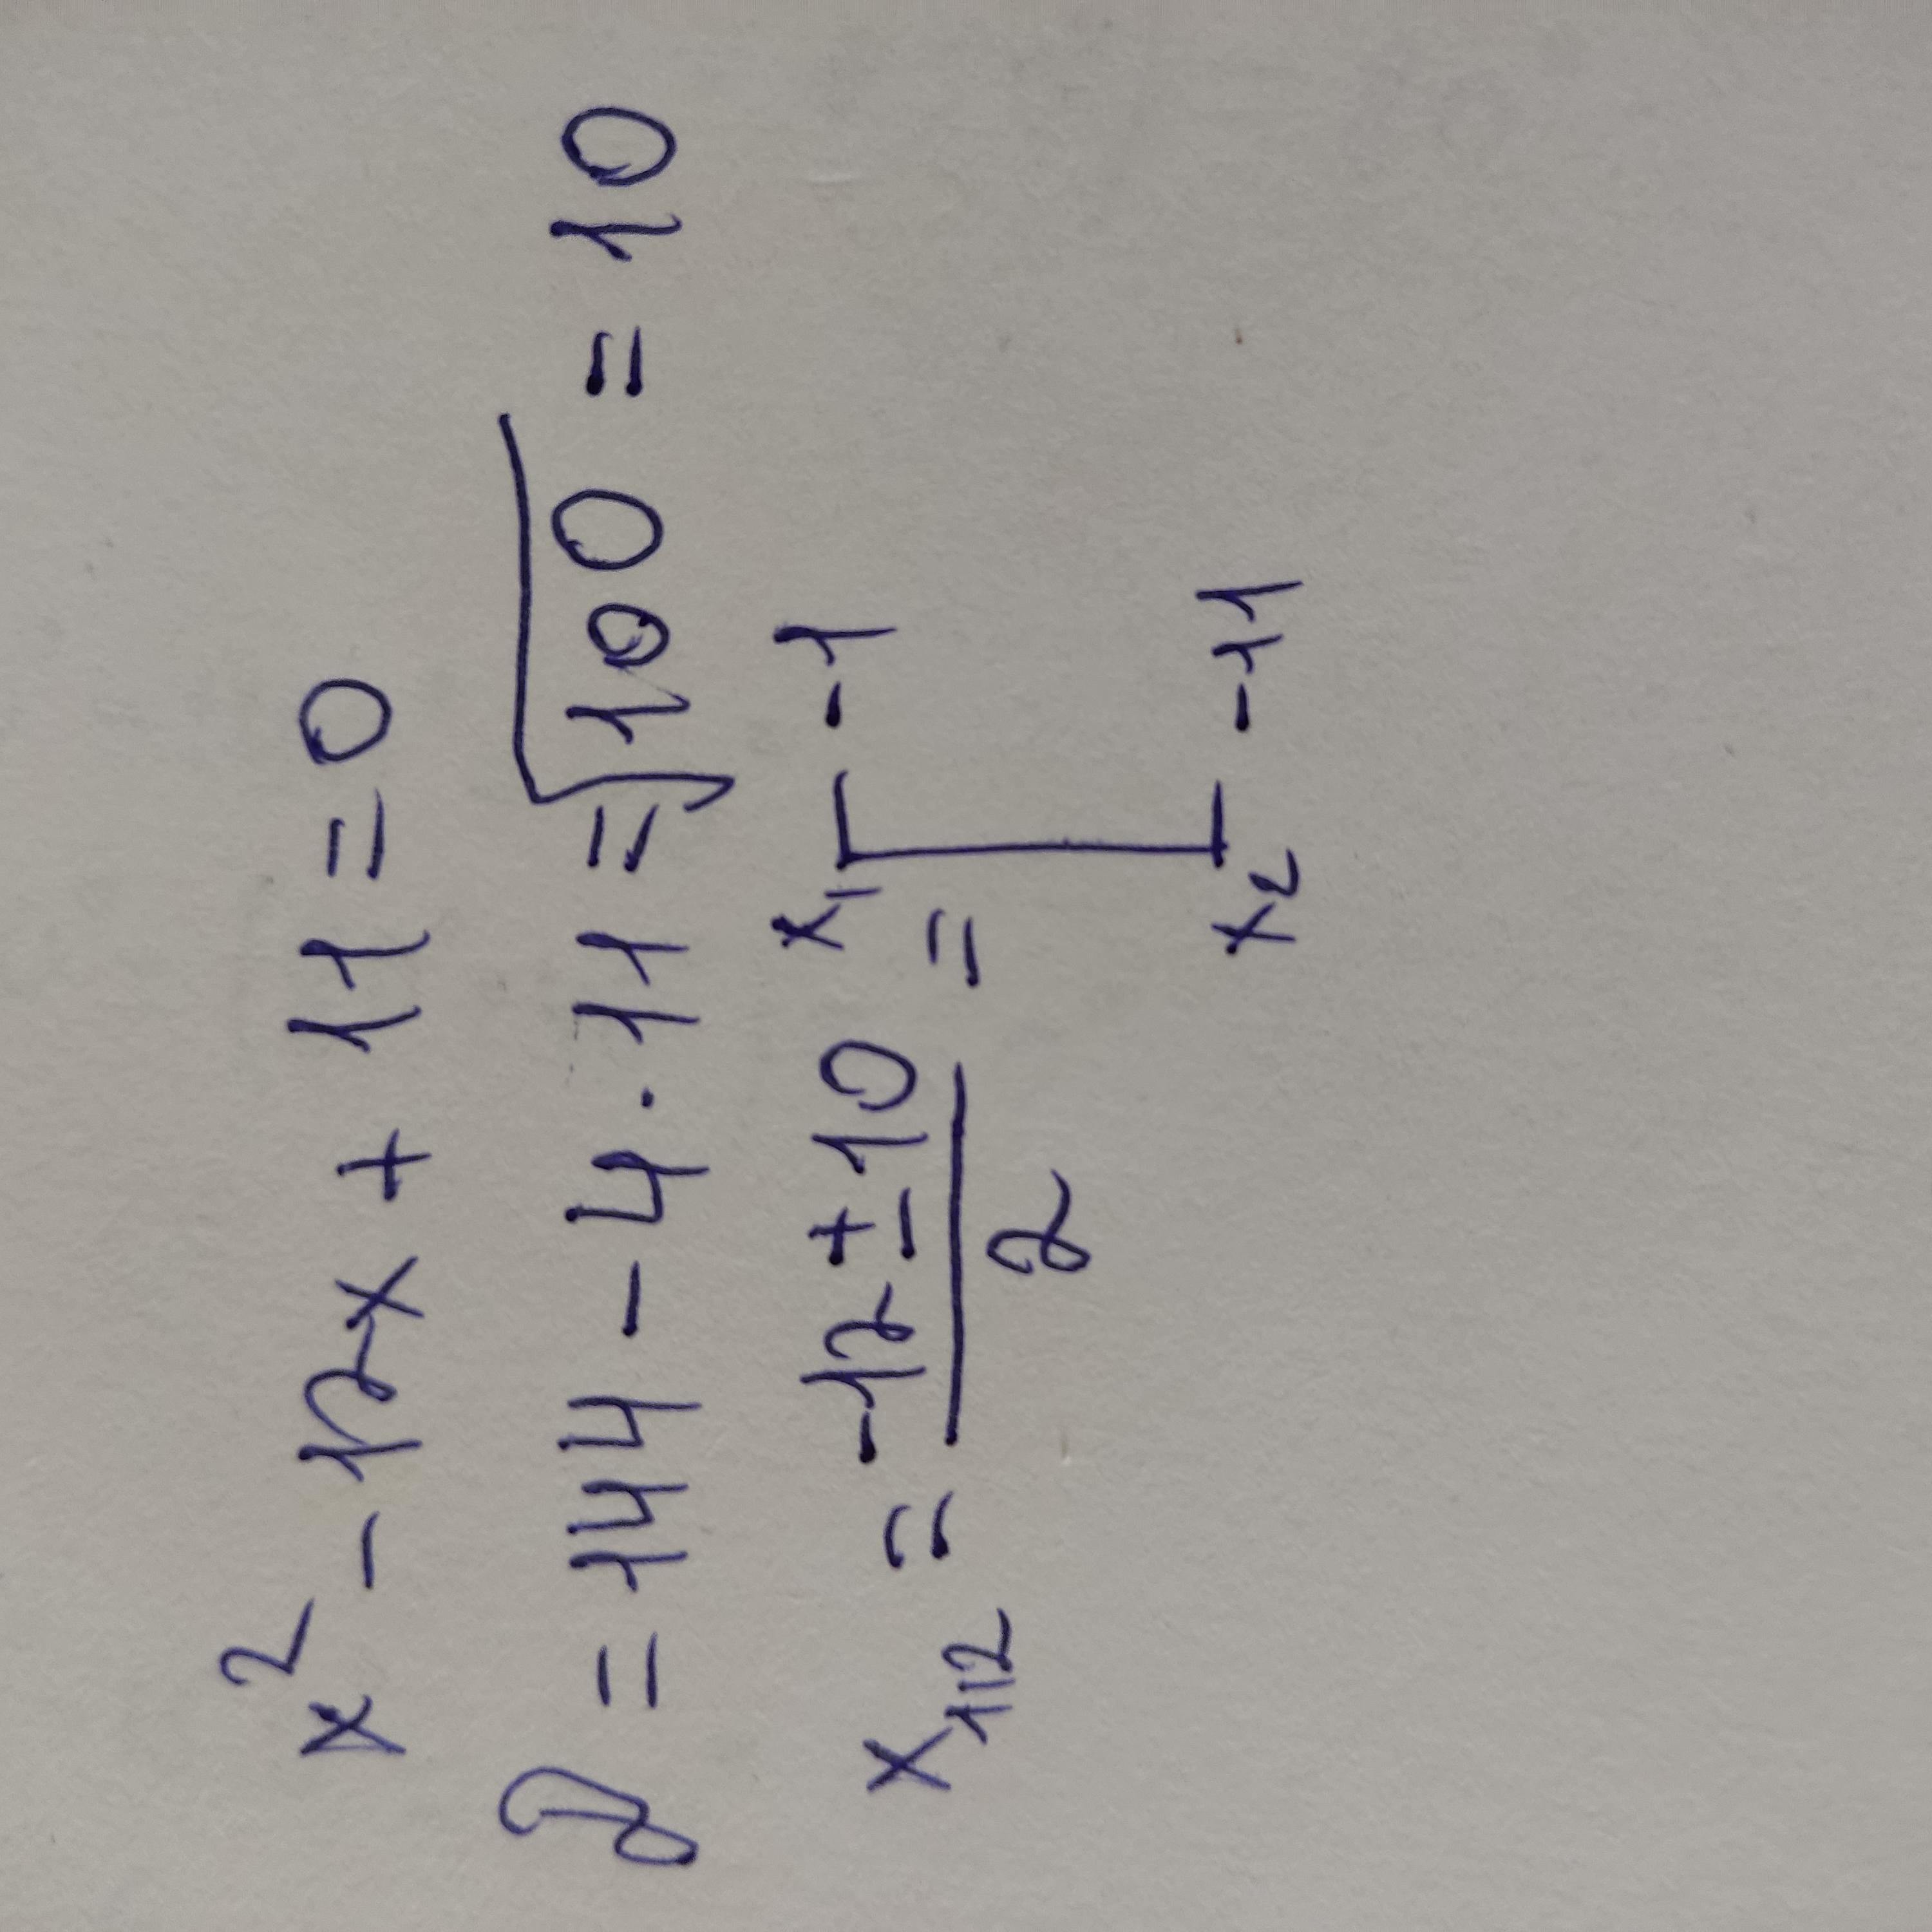 x² - 12x + 11 = 0
D = 144 - 4 · 11 = √100 = 10
x₁,₂ = (-12 ± 10) / 2 = x₁ -1
x₂ -11